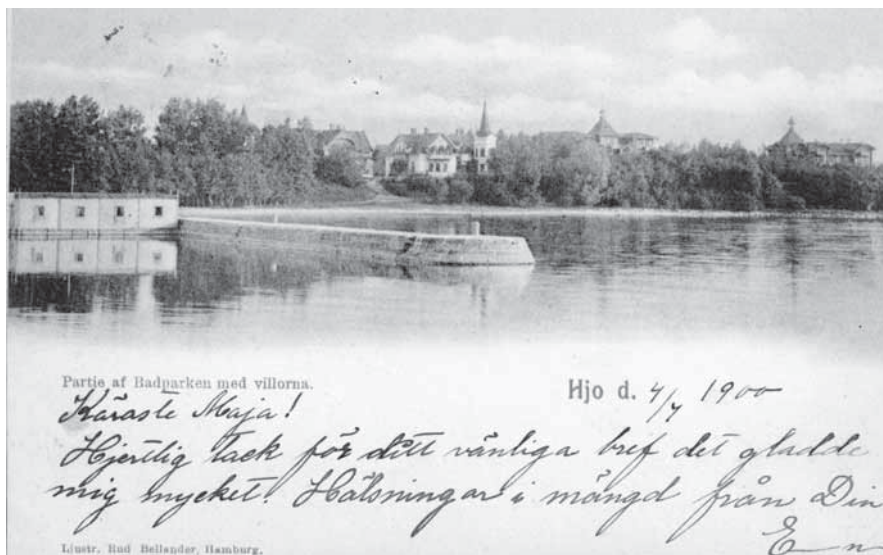 Partie af Badparken med villorna.
Hjo d. 4/7 1900
Käraste Maja!
Hjertlig tack för ditt vänliga bref det gladde
mig mycket! Hälsningar i mängd från Din
E n
Ljustr. Rud Bellander, Hamburg.